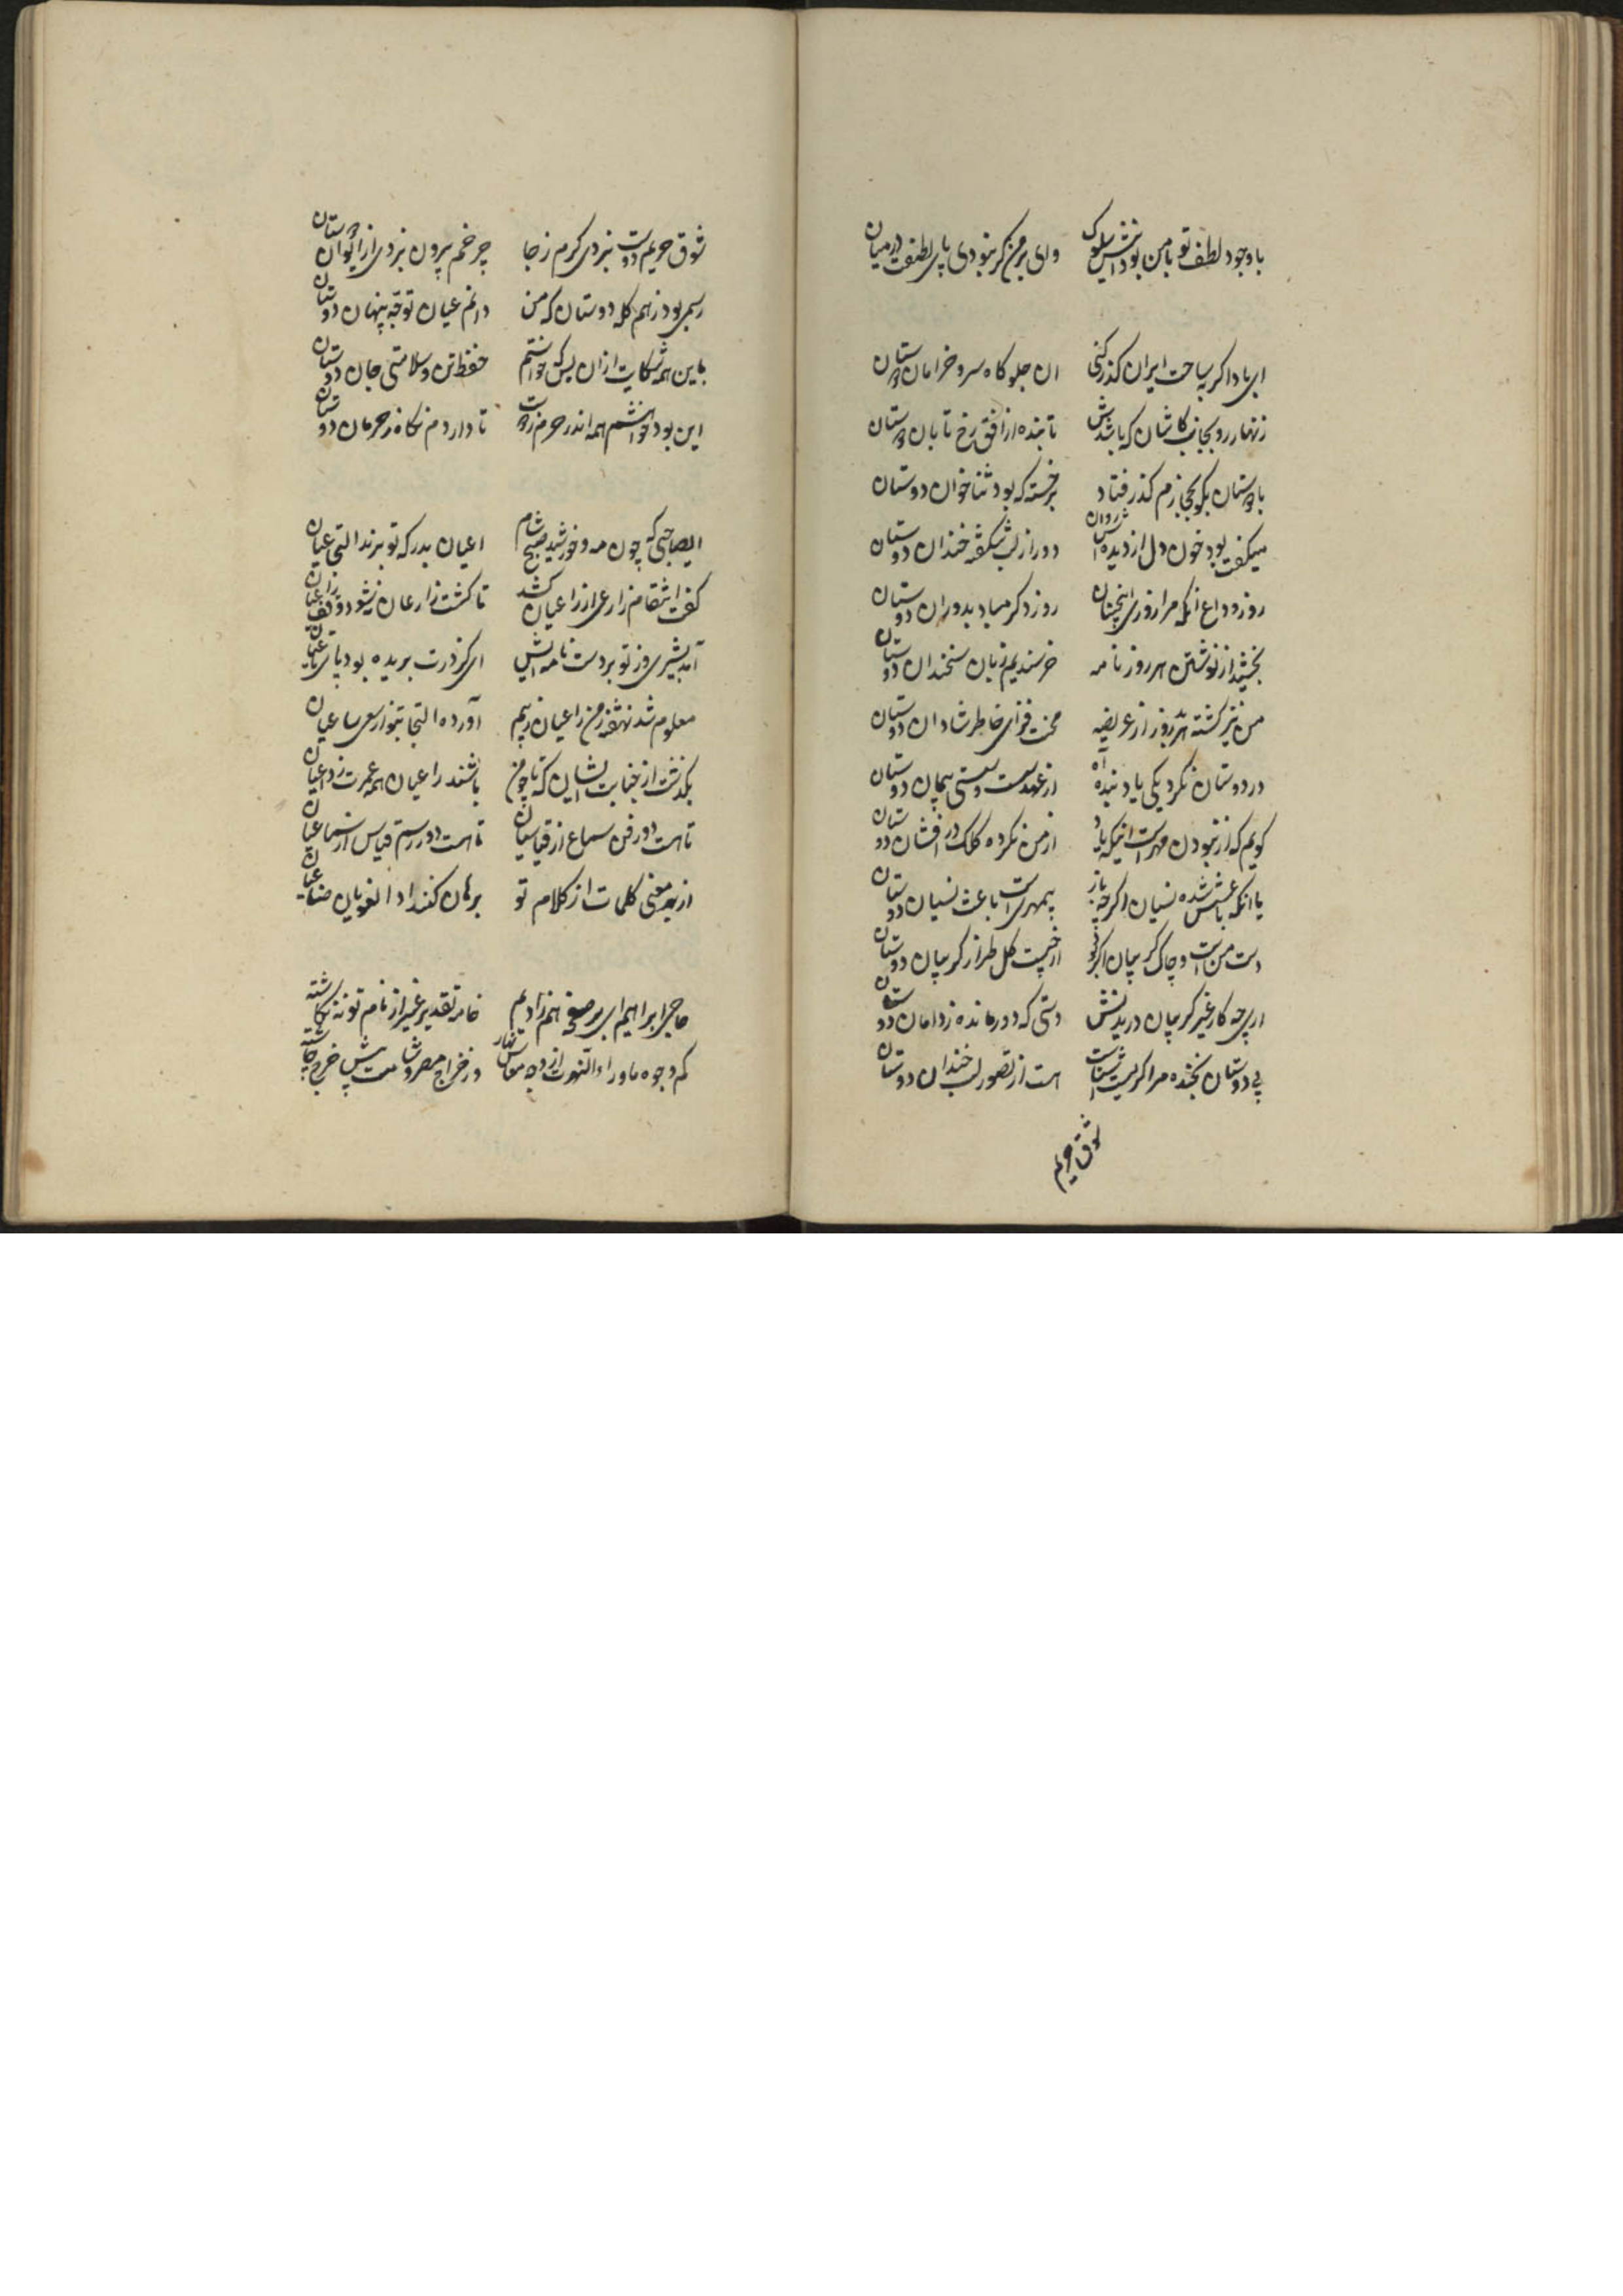 با وجود لطف تو با من بود اینش سلوک وای بر من گر نبودی پای لطفت در میان
ای باد اگر بساحت ایران گذر کنی آن جلوگاه سرو خرامان دوستان
زنهار رو بجانب کاشان که باشدش تابنده از افق رخ تابان دوستان
با دوستان بگو گذر فتاد بر خسته که بود ثناخوان دوستان
میگفت بود خون دل از دیده‌اش روان دور از لب شکفته خندان دوستان
روز وداع آنکه مرا روزی اینچنان روز دگر مباد بدوران دوستان
از نوشتن هر روز نامه خرسندیم زبان سخندان دوستان
من نیز گشته هر روز از عریضه محنت فزای خاطر شادان دوستان
در دوستان نکرد یکی یاد بنده آه از عهد سست و سستی پیمان دوستان
گویم که از نبودن مهرست اینکه یاد از من نکرده کلک درافشان دوستان
یا آنکه باعثش شده نسیان اگر چه باز بیمهری است باعث نسیان دوستان
دست من است و چاک گریبان اگر از چیست گل طراز گریبان دوستان
از پی چه کار غیر گریبان دریدنش دستی که دور مانده ز دامان دوستان
بی دوستان بخنده مرا گر لب آشناست هست از تصور لب خندان دوستان
شوق حریم
شوق حریم دوست نبردی گرم ز جا چرخم برون نبردی از ایوان دوستان
رسمی بود ز هم گله دوستان که من دانم عیان توجه پنهان دوستان
با این همه شکایت از آن بس که خواستم حفظ تن و سلامتی جان دوستان
این بود خواهشم همه اندر حریم دوست تا داردم نگاه ز حرمان دوستان
ایصاحبی که چون مه و خورشید صبح و شام اعیان بدرگه تو برند التجی عیان
گفت انتقام زارعی از زاعیان کشد تا کشت زارعان نشود وقف زاعیان
آمد بشیری و ز تو بر دست نامه‌ایش ای کز درت بریده بود پای
معلوم شد نهفته ز من زاعیان آورده التجا بتو از سعی ساعیان
بگذشت از جنایت ایشان که تا چو من باشند راعیان همه عمرت ز داعیان
تا هست در فن سماع از قیاسیان تا هست در رسم قیاس از سماعیان
از بهر معنی کلمات از کلام تو برهان کنند ادا لغویان
حاجی ابراهیم ای بر صفحه خامه تقدیر غیر از نام تو ننگاشته
کم وجوه ماوراءالنهرت از وجه معاش نهار در خراج مصر و شامت پیش خرج چاشته